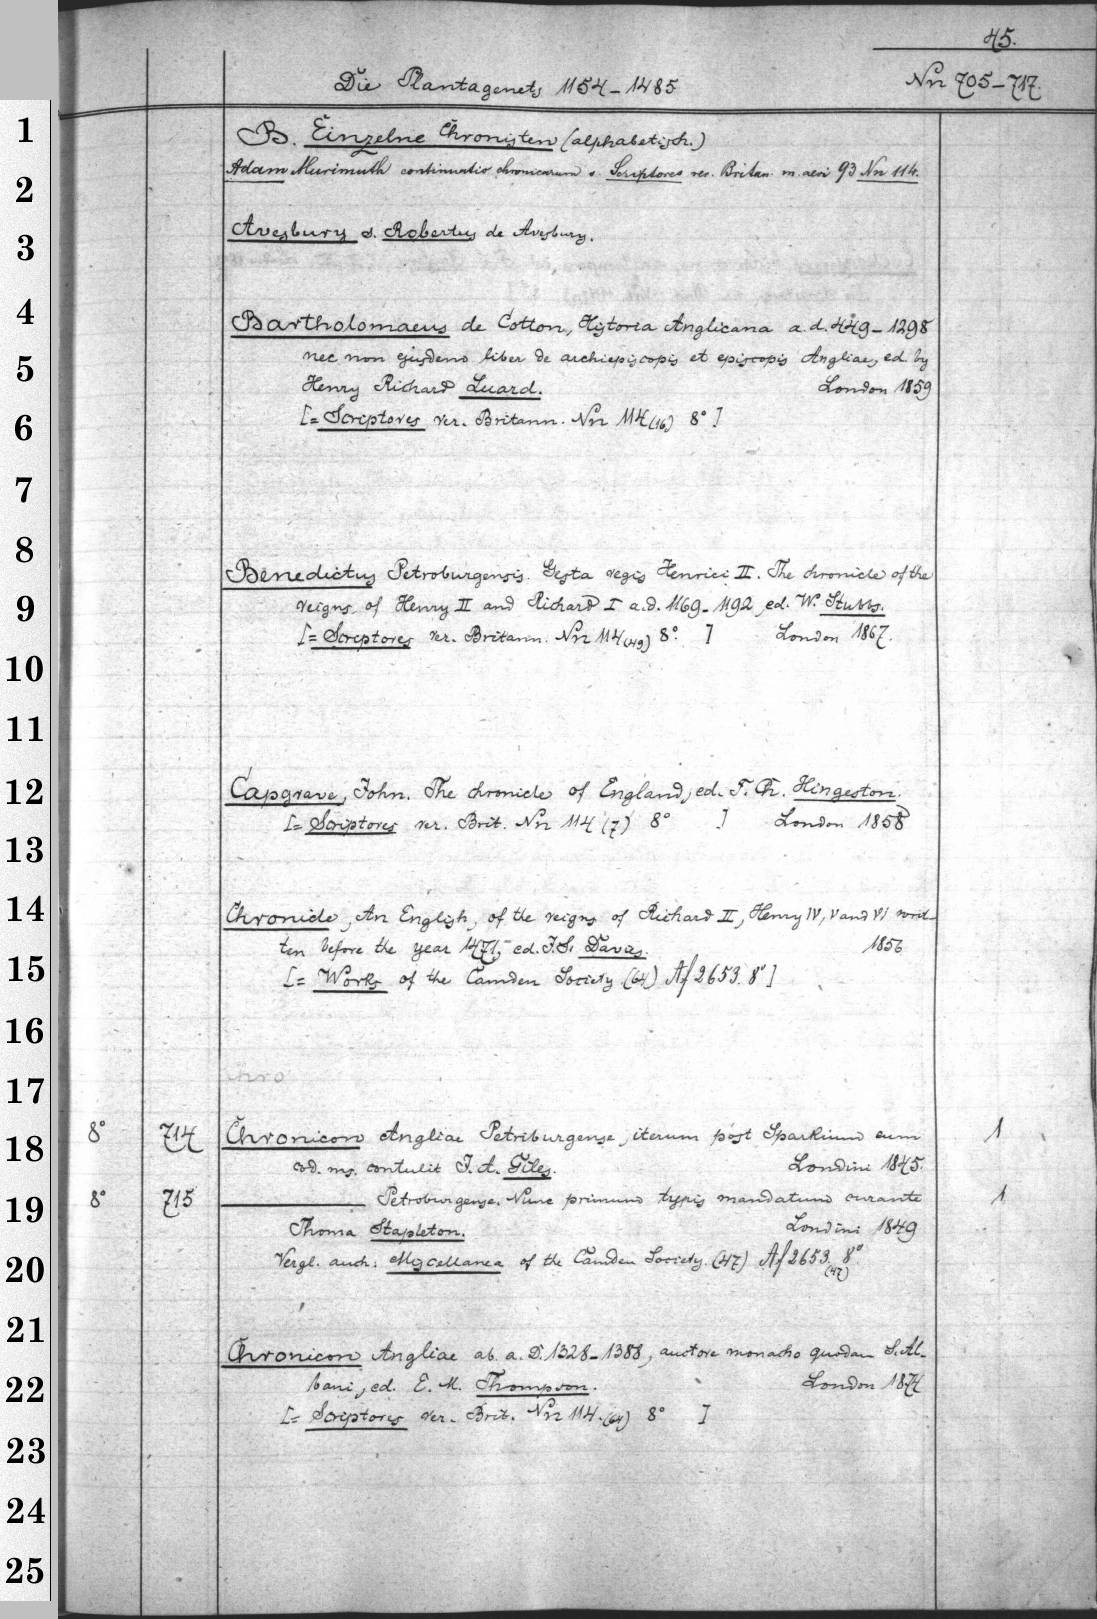 45.
Die Plantagenets 1154-1485 Nn 705-717.
1 B. Einzelne Chronisten (alphabetisch.)
2 Adam Murimuth continuatio chronicarum s. Scriptores rer. Britan. m. aevi 93 Nn 114.
3 Avesbury s. Robertus de Avesbury.
4 Bartholomaeus de Cotton, Historia Anglicana a.d. 449-1298
5 nec non ejusdem liber de archiepiscopis et episcopis Angliae, ed. by
Henry Richard Luard. London 1859
6 [= Scriptores rer. Britann. Nn 114 (16) 8° ]
7
8 Benedictus Petroburgensis. Gesta regis Henrici II. The chronicle of the
9 reigns of Henry II and Richard I a.d. 1169-1192, ed. W. Stubbs.
[= Scriptores rer. Britann. Nn 114 (49) 8°. ] London 1867.
10
11
12 Capgrave, John. The chronicle of England, ed. F. Ch. Hingeston.
[= Scriptores rer. Brit. Nn 114 (7) 8° ] London 1858
13
14 Chronicle, An English, of the reigns of Richard II, Henry IV, V and VI writ-
ten before the year 1471, ed. J.S. Davies. 1856
15 [= Works of the Camden Society (64) Af 2653. 8° ]
16
17 Chro
18 8° 714 Chronicon Angliae Petriburgense, iterum post Sparkium cum 1
cod. ms. contulit J. A. Giles. Londini 1845.
19 8° 715 Petroburgense. Nunc primum typis mandatum curante 1
Thoma Stapleton. Londini 1849
20 Vergl. auch: Miscellanea of the Camden Society. (47) Af 2653. 8°
(47)
21
Chronicon Angliae ab a. D. 1328-1388, auctore monacho quodam S. Al-
22 bani, ed. E. M. Thompson. London 1874
[= Scriptores rer. Brit. Nn 114. (64) 8° ]
23
24
25